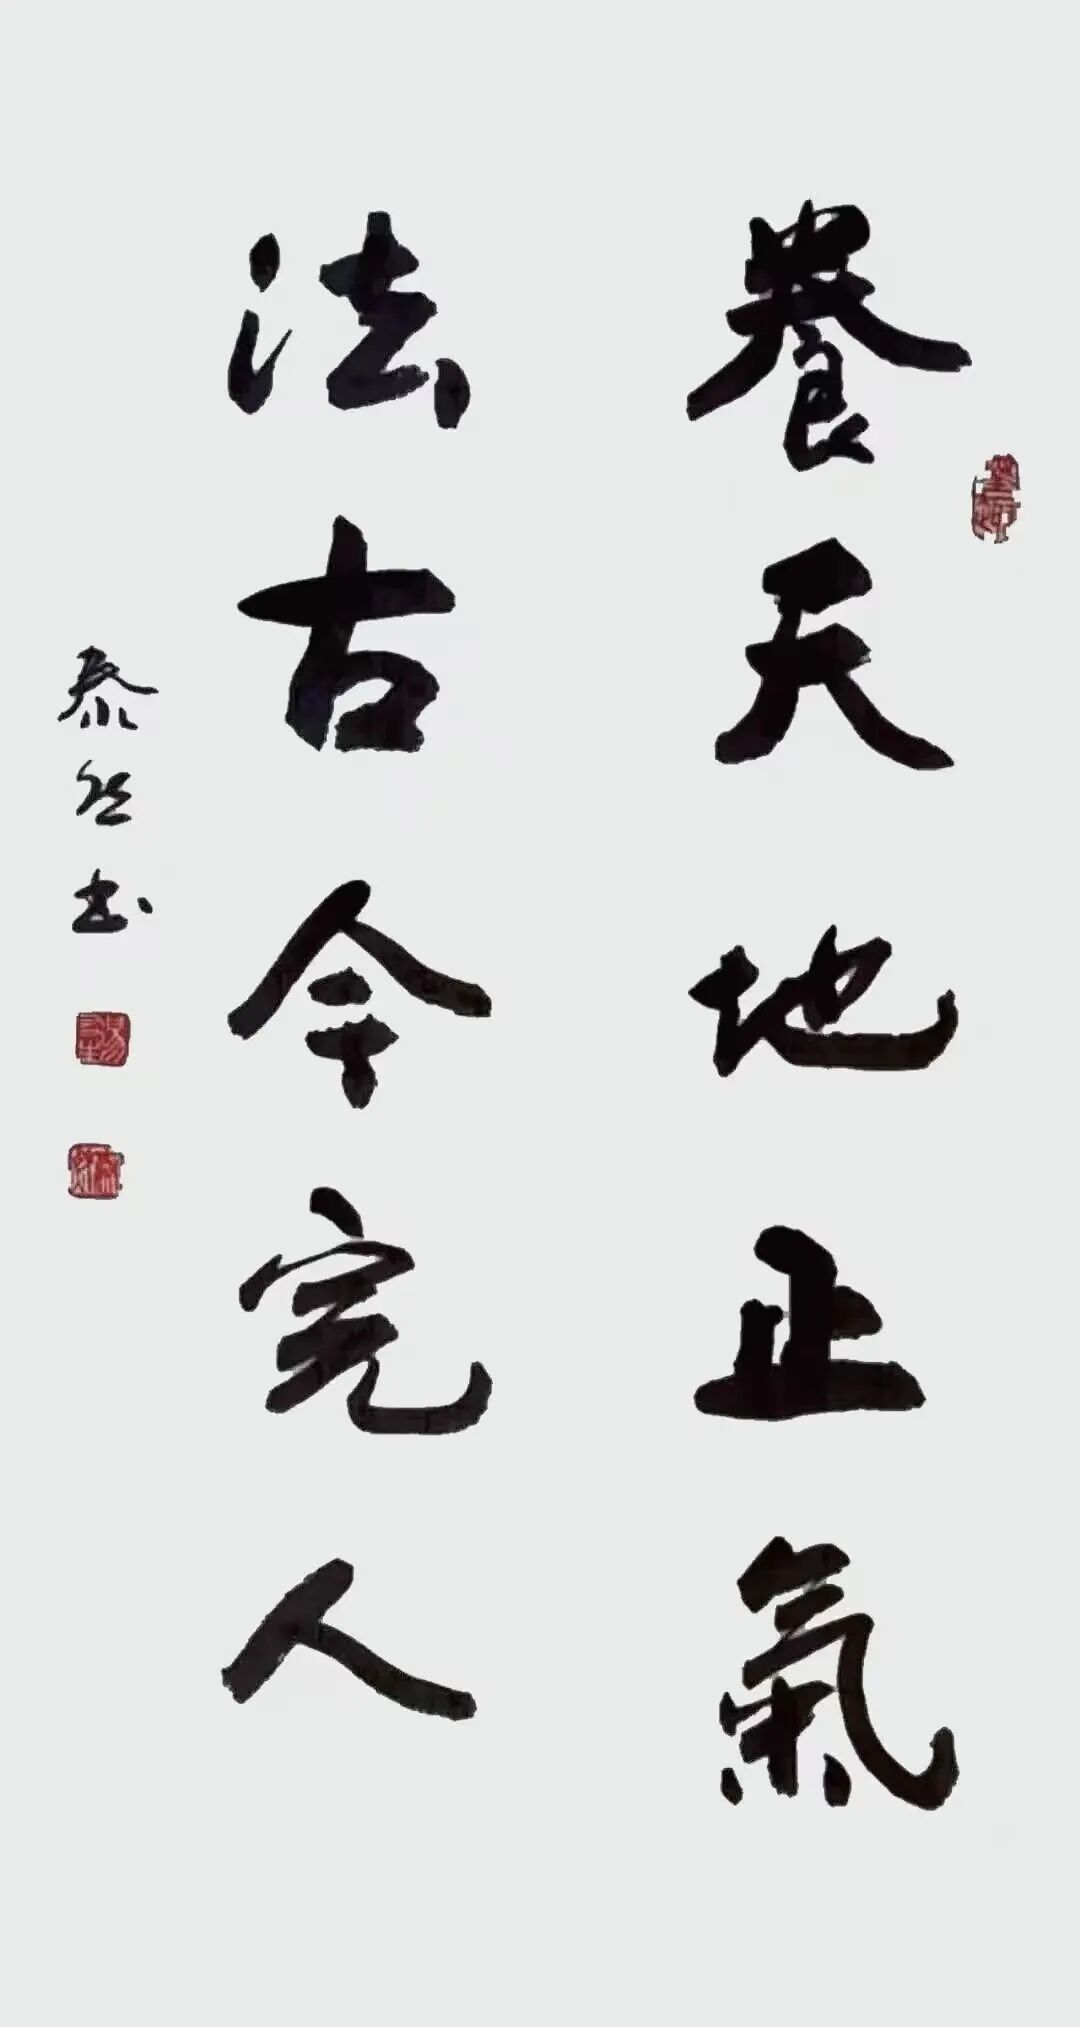 養天地正氣
法古今完人
泰然书